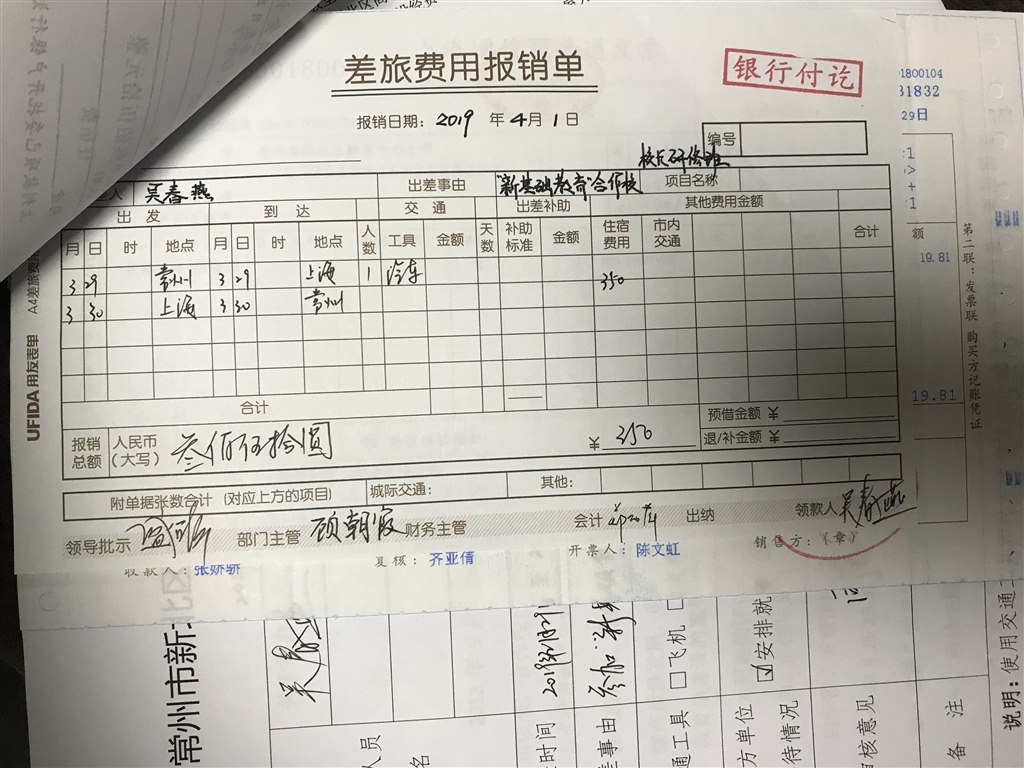 差旅费用报销单
银行付讫
1800104
31832
29日
报销日期: 2019 年 4月 1 日
编号
校长研修班
人 吴春燕 出差事由 "新基础教育"合作校 项目名称
出 发 到 达 人数 交 通 天数 出差补助 其他费用金额
月 日 时 地点 月 日 时 地点 工具 金额 补助标准 金额 住宿费用 市内交通 合计
3 29 常州 3 29 上海 1 汽车 350
3 30 上海 3 30 常州
合计
预借金额 ¥
报销总额 人民币(大写) 叁佰伍拾圆 ¥ 350 退/补金额 ¥
附单据张数合计 (对应上方的项目) 城际交通: 其他:
领导批示 部门主管 顾朝霞 财务主管 会计 出纳 领款人 吴春燕
收款人: 张娇娇 复核: 齐亚倩 开票人: 陈文虹 销售方:(章)
UFIDA 用友表单 A4差旅费用
额
19.81
19.81
第二联:发票联 购买方记账凭证
常州市新北区
吴春燕
人员
名
时间
事由 参加"新
通工具 □飞机
方单位 待情况 ☑安排就
审核意见
备 注
说明:使用交通工